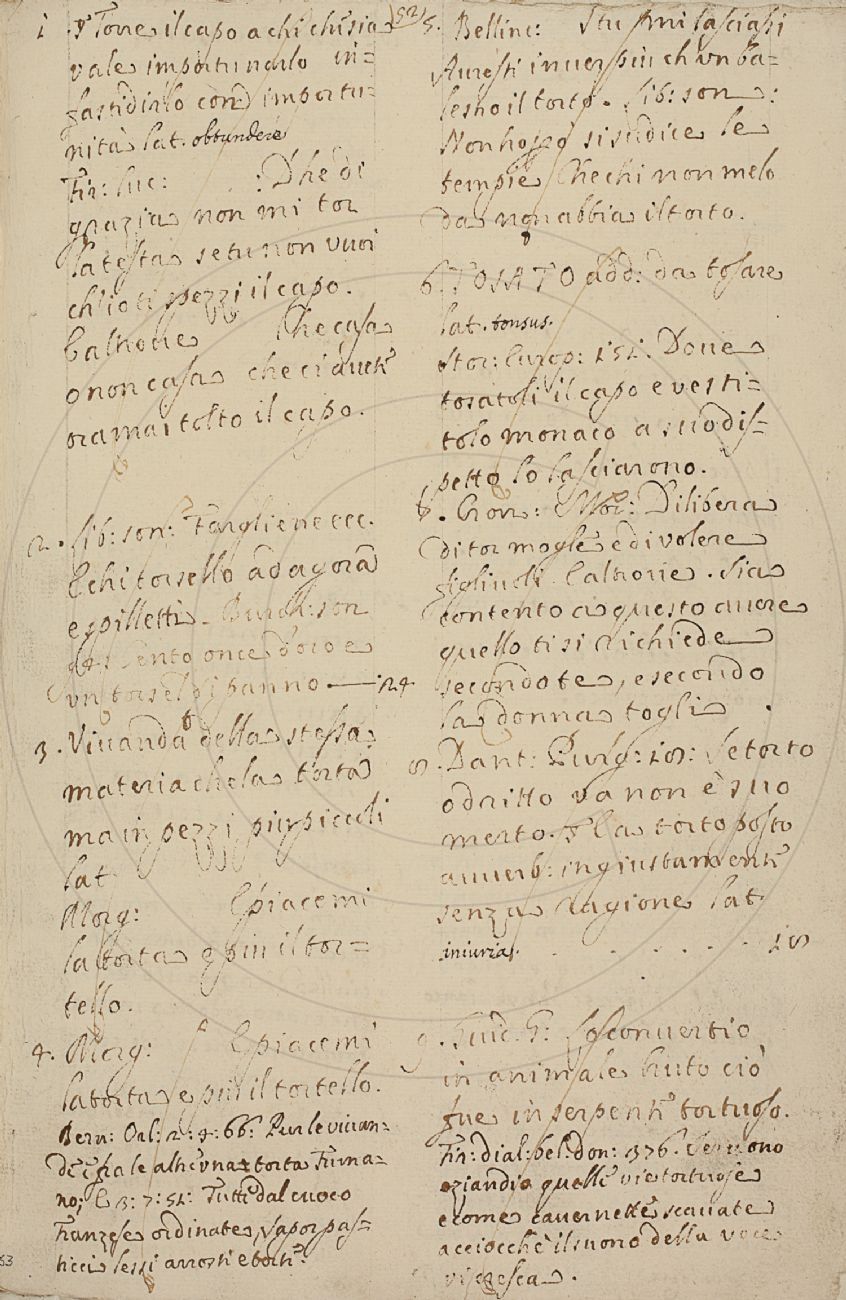 1 . Torre il capo a chi chi sia
vale importunarlo in=
fastidirlo con importu=
nità lat. obtundere
Fir: luc: : Dhe di
grazia non mi tor
la testa se tu non vuoi
ch'io ti spezzi il capo.
Caltrove Che casa
o non casa che ci avete
oramai tolto il capo.
2. lib: son: Togliene ecc.
E chi torsello ad agora
e spilletti. Burch: son
Cento once d'oro e
un torsel di panno — 24
3. Vivanda della stessa
materia che la torta
ma in pezzi piu piccoli
lat
Morg: E piacemi
la torta e piu il tor=
tello.
4. Morg: E piacemi
la torta e piu il tortello.
Bern: Orl: 2: 4: 66: Pur le vivan=
de
no; E 3: 7: 51: Tutti dal cuoco
Franzese ordinate, sapor pas=
ticci lessi arrosti e torte.
63
(52) 5. Bellinc: S tu mi lasciassi
Auresti in ver piu ch'un ba=
lestro il torto. lib: son:
Non ho se si sudice le
tempie Che chi non me lo
da non abbia il torto.
6. TOSATO add: da tosare
lat. tonsus.
Stor: Europ: 151: Dove
tosatoli il capo e vesti=
tolo monaco a suo dis=
petto lo lasciarono.
. Cron: Mor: Dilibera
di tor mogle e di volere
figliuoli. Caltrove. Sia
contento a questo avere
quello ti si richiede
secondo te, e secondo
la donna togli .
8. Dant: Purg: 18: Se torto
o dritto va non è suo
merto. A torto posto
avverb: ingiustamente
senza ragione lat
iniuria. . . . . . . 18
9. Guid. G: lo convertio
in animale bruto ciò
fue in serpente tortuoso.
Fir: dial: bel: don: 376. Servono
eziandio quelle vie tortuose
e come cavernette scavate
acciocchè il suono della voce
vi cresca.